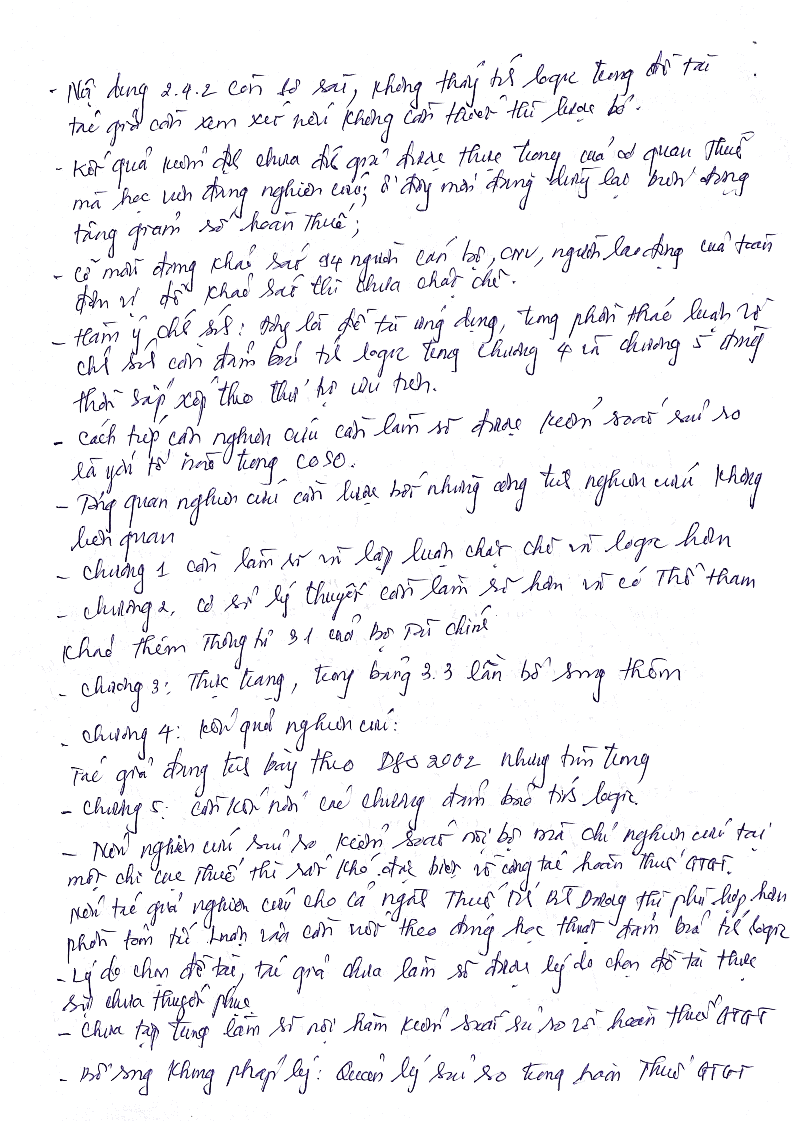 - Nội dung 2.4.2 còn sơ sài, không thấy tính logic trong đề tài
tác giả cần xem xét nếu không cần thiết thì lược bỏ.
- Kết quả kiểm định chưa để giải được thực trạng của cơ quan Thuế
mà học viên đang nghiên cứu; ở đây mới đang dừng lại biến động
tăng giảm số hoàn thuế;
- Cỡ mẫu dùng khảo sát 94 người cán bộ, CNV, người lao động của toàn
đơn vị để khảo sát thì chưa chặt chẽ.
- Hàm ý chính sách: đây là đề tài ứng dụng, trong phần thảo luận và
chính sách cần đảm bảo tính logic trong chương 4 và chương 5 đồng
thời sắp xếp theo thứ tự ưu tiên.
- Cách tiếp cận nghiên cứu cần làm rõ được kiểm soát rủi ro
là yếu tố nào trong COSO.
- Tổng quan nghiên cứu cần lược bớt những công trình nghiên cứu không
liên quan
- Chương 1 cần làm rõ và lập luận chặt chẽ và logic hơn
- Chương 2, cơ sở lý thuyết cần làm rõ hơn và có thể tham
khảo thêm Thông tư 31 của Bộ Tài chính
- Chương 3: Thực trạng, trong bảng 3.3 cần bổ sung thêm
- Chương 4: Kết quả nghiên cứu:
Tác giả đang trình bày theo 2002 nhưng trong
- Chương 5: cần kết nối các chương đảm bảo tính logic.
- Nếu nghiên cứu rủi ro kiểm soát nội bộ mà chỉ nghiên cứu tại
một chi cục Thuế thì rất khó, đặc biệt về công tác hoàn thuế GTGT.
Nếu tác giả nghiên cứu cho cả ngành Thuế tỉnh Bình Dương thì phù hợp hơn
phần tóm tắt luận văn cần viết theo đúng học thuật đảm bảo tính logic
- Lý do chọn đề tài, tác giả chưa làm rõ được lý do chọn đề tài thực
sự chưa thuyết phục
- Chưa tập trung làm rõ nội hàm kiểm soát rủi ro về hoàn thuế GTGT
- Bổ sung khung pháp lý: Quản lý rủi ro trong hoàn Thuế GTGT